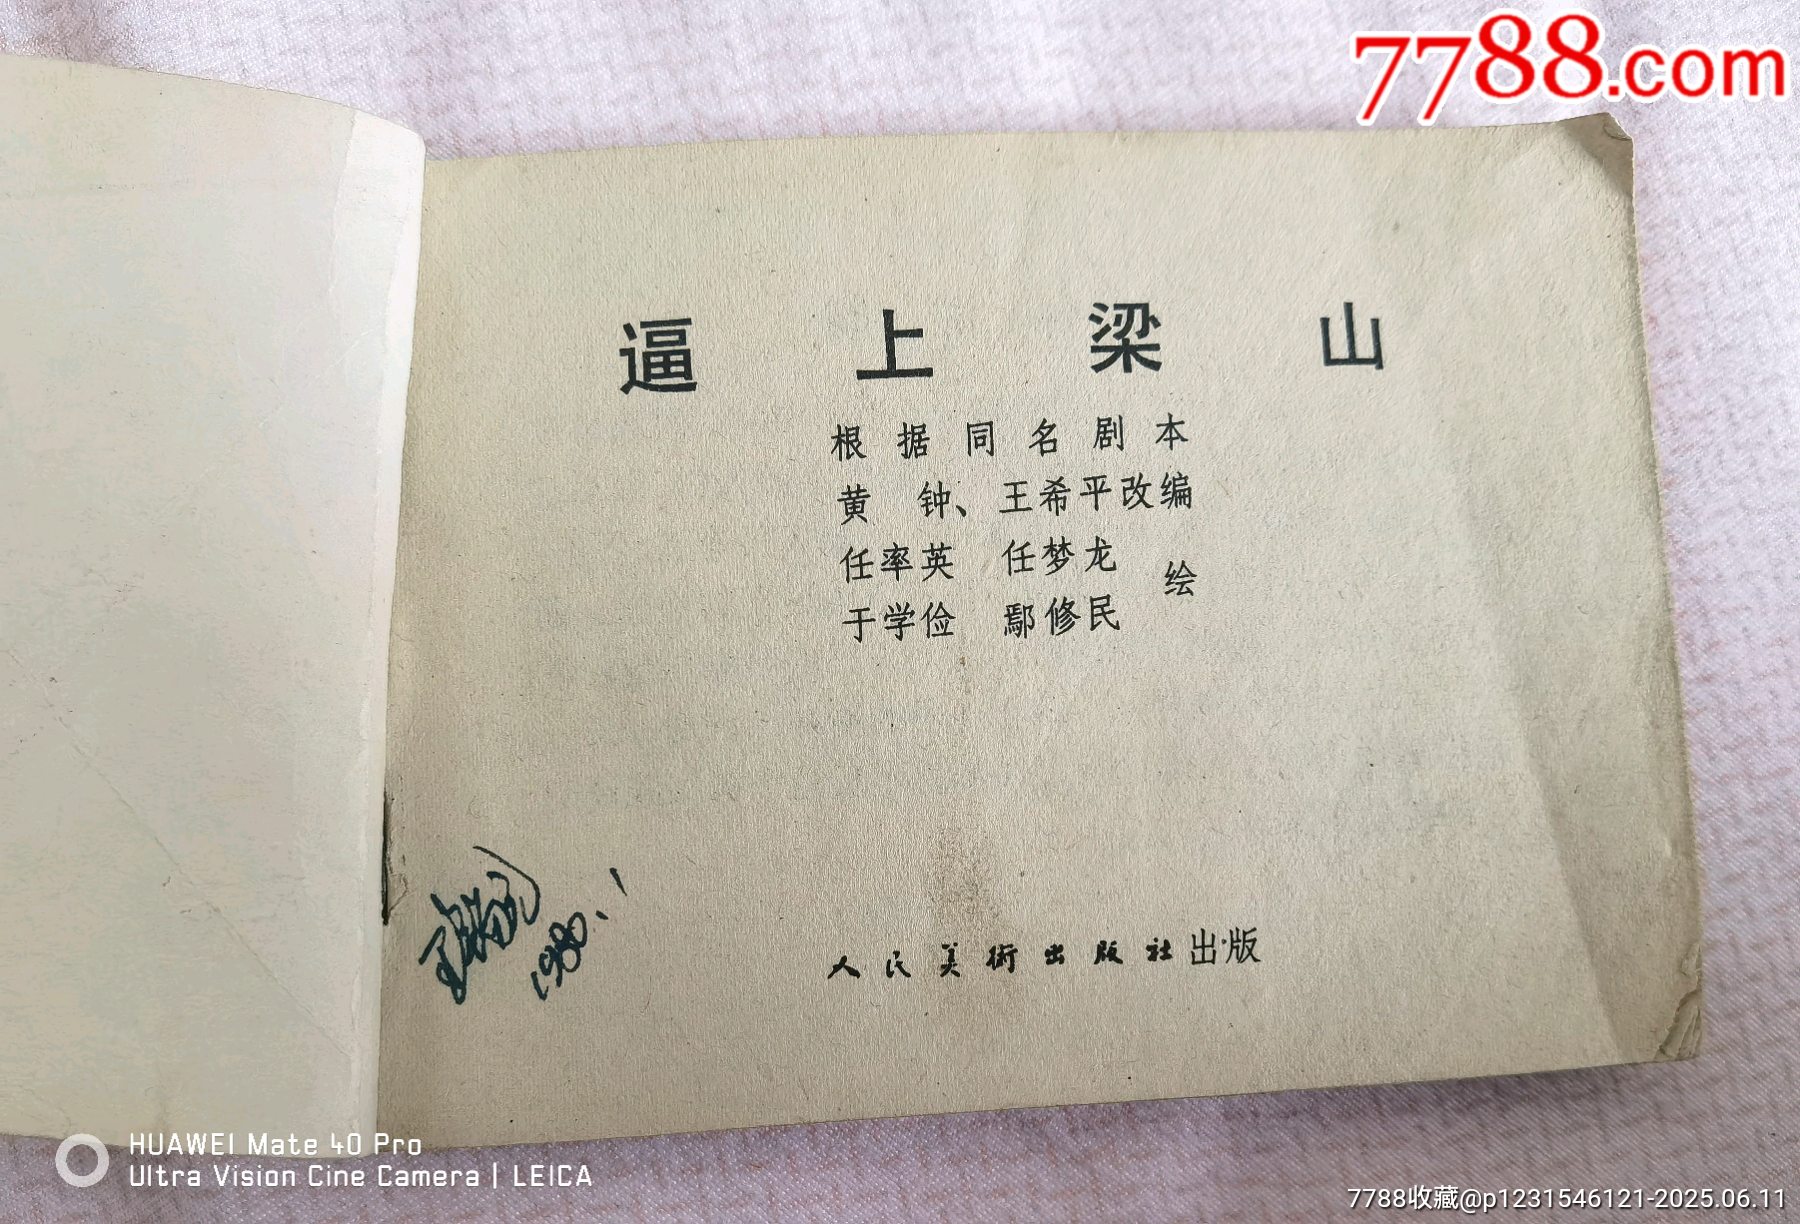 7788.com
逼上梁山
根据同名剧本
黄 钟、王希平改编
任率英 任梦龙
于学俭 鄢修民 绘
1980.1
人民美術出版社出版
HUAWEI Mate 40 Pro
Ultra Vision Cine Camera | LEICA
7788收藏@p1231546121-2025.06.11